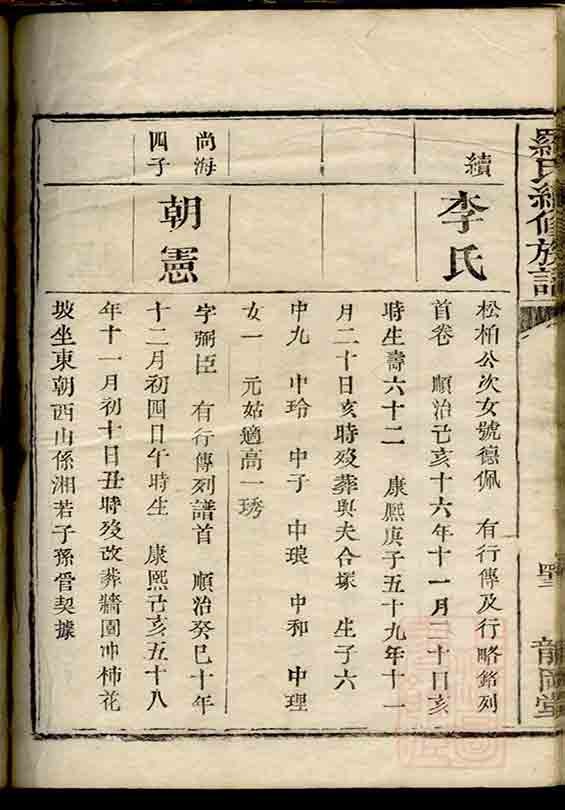 羅氏續修族譜
龍岡堂
續
李氏
松柏公次女號德佩 有行傳及行略銘列
首卷 順治己亥十六年十一月二十日亥
時生壽六十二 康熙庚子五十九年十一
月二十日亥時歿葬與夫合塚 生子六
中九 中玲 中子 中琅 中和 中理
女一 元姑適高一琇
尚海
四子
朝憲
字弼臣 有行傳列譜首 順治癸巳十年
十二月初四日午時生 康熙己亥五十八
年十一月初十日丑時歿改葬牆圍冲柿花
坡坐東朝西山係湘若子孫管契據